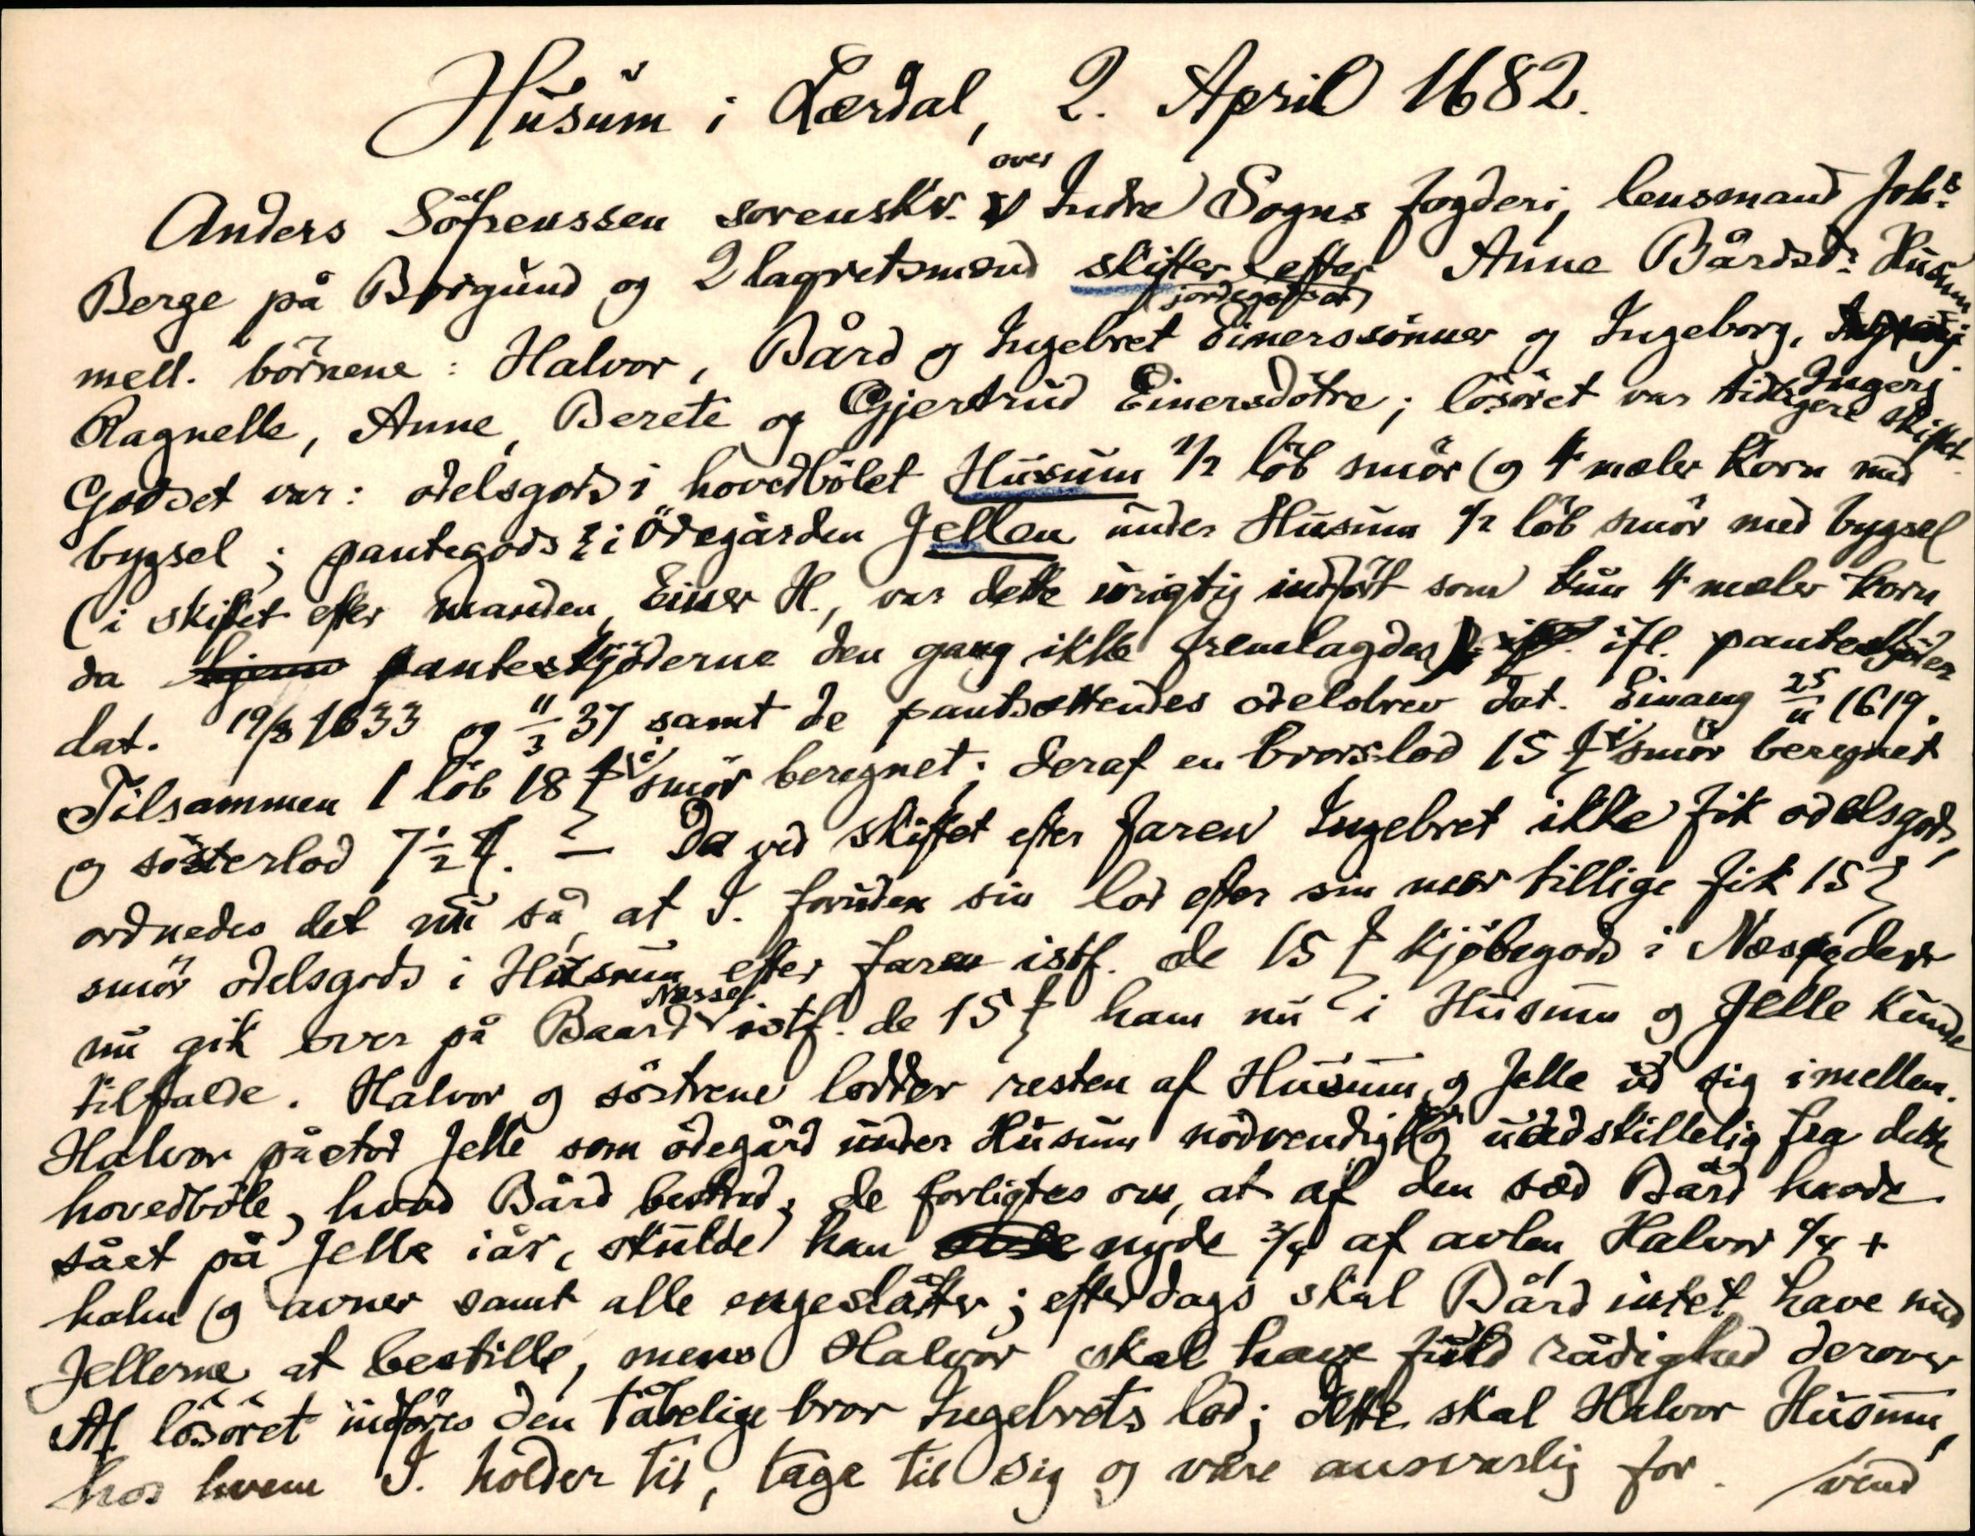 Husum i Lærdal, 2. April 1682.
Anders Söfrenssen sorenskr. over Indre Sogns fogderi, lensmand Johs
Berge på Borgund og 2 lagretsmænd skifter jordegodset efter Anne Bårdsdr Husum
mell. börnene: Halvor, Bård og Ingebret Einerssönner og Ingeborg, Ingerj
Ragnelle, Anne, Berete og Gjertrud Einersdötre; lösöret var tidligere skiftet.
Godset var: odelsgods i hovedbölet Husum 1/2 löb smör og 4 mæler korn med
bygsel; pantegods i ödegården Jellen under Husum 1/2 löb smör med bygsel
(i skiftet efter manden, Einer H., var dette urigtig indfört som kun 4 mæler korn,
da panteskjöderne den gang ikke fremlagdes) ifl. panteskjöder
dat. 19/8 1633 og 11/3 37 samt de pantsættendes odelsbrev dat. Einang 25/11 1619.
Tilsammen 1 löb 18 ℔ i smör beregnet; deraf en brorslod 15 ℔ i smör beregnet
og sösterlod 7 1/2 ℔. — Da ved skiftet efter faren Ingebret ikke fik odelsgods,
ordnedes det nu så, at I. foruden sin lod efter sin mor tillige fik 15 ℔
smör odelsgods i Husum efter faren istf. de 15 ℔ kjöbegods i Næse, der
nu gik over på Baard Næsse istf. de 15 ℔ ham nu i Husum og Jelle kunde
tilfalde. Halvor og söstrene lodder resten af Husum og Jelle ud sig imellem.
Halvor påstod Jelle som ödegård under Husum nödvendig og uadskillelig fra dette
hovedböle, hvad Bård bestred; de forligtes om, at af den sæd Bård havde
sået på Jelle iår, skulde han nyde 3/4 af avlen, Halvor 1/4 +
halm og avner samt alle engeslåtter; efterdags skal Bård intet have med
Jellerne at bestille, mens Halvor skal have fuld rådighed derover
Af lösöret indföres den tåbelige bror Ingebrets lod; dette skal Halvor Husum,
hos hvem I. holder til, tage til sig og være ansvarlig for. /vend